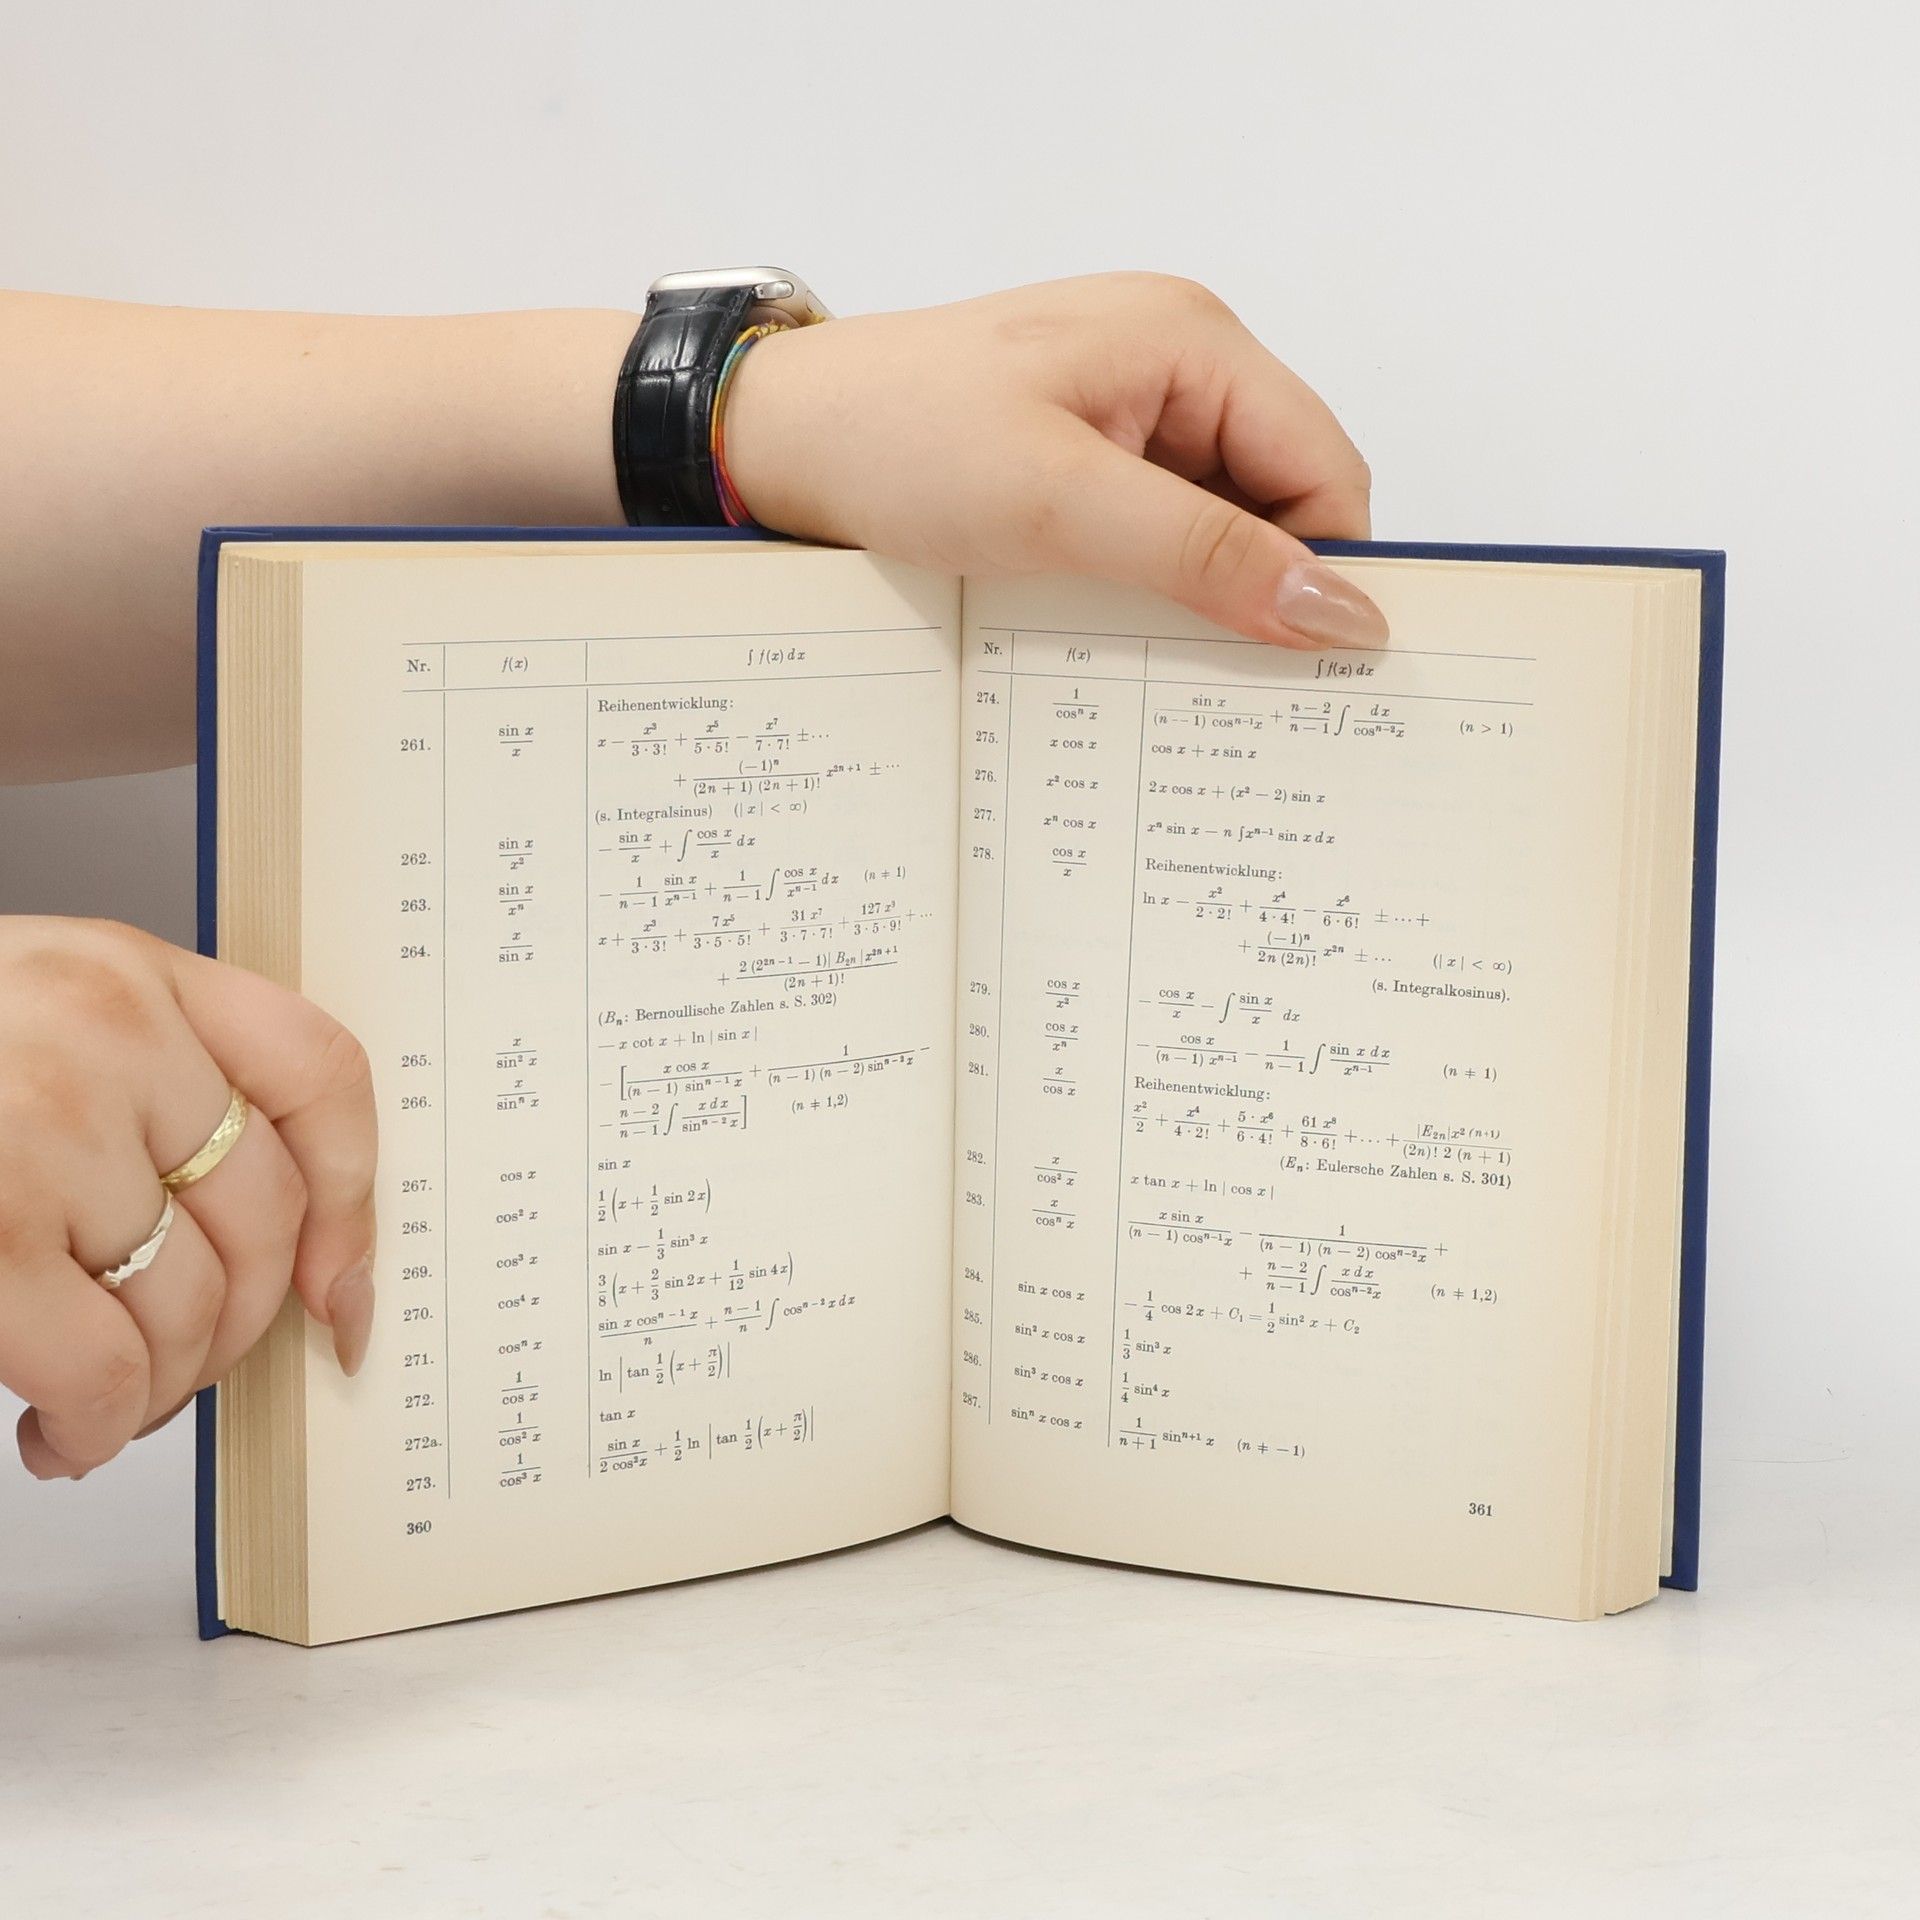 Nr. f(x) ∫ f(x) dx
Reihenentwicklung:
261. sin x / x x − x³/(3·3!) + x⁵/(5·5!) − x⁷/(7·7!) ±···
+ (−1)ⁿ/((2n + 1) (2n + 1)!) x²ⁿ⁺¹ ±···
(s. Integralsinus) (|x| < ∞)
262. sin x / x² − sin x / x + ∫ cos x / x dx
263. sin x / xⁿ − 1/(n − 1) sin x / xⁿ⁻¹ + 1/(n − 1) ∫ cos x / xⁿ⁻¹ dx (n ≠ 1)
264. x / sin x x + x³/(3·3!) + 7x⁵/(3·5·5!) + 31x⁷/(3·7·7!) + 127x⁹/(3·5·9!) + ···
+ 2 (2²ⁿ⁻¹ − 1)|B₂ₙ|x²ⁿ⁺¹ / (2n + 1)!
(Bₙ: Bernoullische Zahlen s. S. 302)
265. x / sin² x − x cot x + ln | sin x |
266. x / sinⁿ x − [x cos x / ((n − 1) sinⁿ⁻¹ x) + 1 / ((n − 1) (n − 2) sinⁿ⁻² x) −
− (n − 2)/(n − 1) ∫ x dx / sinⁿ⁻² x] (n ≠ 1,2)
267. cos x sin x
268. cos² x 1/2 (x + 1/2 sin 2x)
269. cos³ x sin x − 1/3 sin³ x
270. cos⁴ x 3/8 (x + 2/3 sin 2x + 1/12 sin 4x)
271. cosⁿ x sin x cosⁿ⁻¹ x / n + (n − 1)/n ∫ cosⁿ⁻² x dx
272. 1 / cos x ln | tan 1/2 (x + π/2) |
272a. 1 / cos² x tan x
273. 1 / cos³ x sin x / (2 cos² x) + 1/2 ln | tan 1/2 (x + π/2) |
360
Nr. f(x) ∫ f(x) dx
274. 1 / cosⁿ x sin x / ((n − 1) cosⁿ⁻¹ x) + (n − 2)/(n − 1) ∫ dx / cosⁿ⁻² x (n > 1)
275. x cos x cos x + x sin x
276. x² cos x 2x cos x + (x² − 2) sin x
277. xⁿ cos x xⁿ sin x − n ∫ xⁿ⁻¹ sin x dx
278. cos x / x Reihenentwicklung:
ln x − x²/(2·2!) + x⁴/(4·4!) − x⁶/(6·6!) ±···+
+ (−1)ⁿ/(2n (2n)!) x²ⁿ ±··· (|x| < ∞)
(s. Integralkosinus).
279. cos x / x² − cos x / x − ∫ sin x / x dx
280. cos x / xⁿ − cos x / ((n − 1) xⁿ⁻¹) − 1/(n − 1) ∫ sin x dx / xⁿ⁻¹ (n ≠ 1)
281. x / cos x Reihenentwicklung:
x²/2 + x⁴/(4·2!) + 5·x⁶/(6·4!) + 61 x⁸/(8·6!) +···+ |E₂ₙ|x² ⁽ⁿ⁺¹⁾ / ((2n)! 2 (n + 1))
(Eₙ: Eulersche Zahlen s. S. 301)
282. x / cos² x x tan x + ln | cos x |
283. x / cosⁿ x x sin x / ((n − 1) cosⁿ⁻¹ x) − 1 / ((n − 1) (n − 2) cosⁿ⁻² x) +
+ (n − 2)/(n − 1) ∫ x dx / cosⁿ⁻² x (n ≠ 1,2)
284. sin x cos x − 1/4 cos 2x + C₁ = 1/2 sin² x + C₂
285. sin² x cos x 1/3 sin³ x
286. sin³ x cos x 1/4 sin⁴ x
287. sinⁿ x cos x 1/(n + 1) sinⁿ⁺¹ x (n ≠ −1)
361